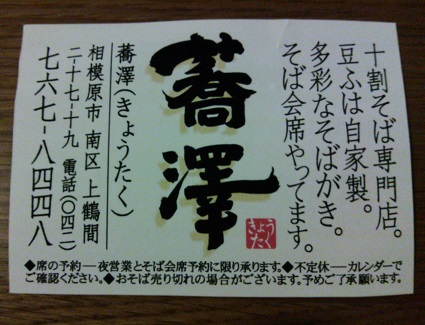 十割そば専門店。
豆ふは自家製。
多彩なそばがき。
そば会席やってます。
蕎澤
きょうたく
蕎澤(きょうたく)
相模原市 南区 上鶴間
二-十七-十九 電話(〇四二)
七六七-八四四八
◆席の予約―夜営業とそば会席予約に限り承ります。◆不定休―カレンダーで
ご確認ください。◆おそば売り切れの場合がございます。予めご了承願います。